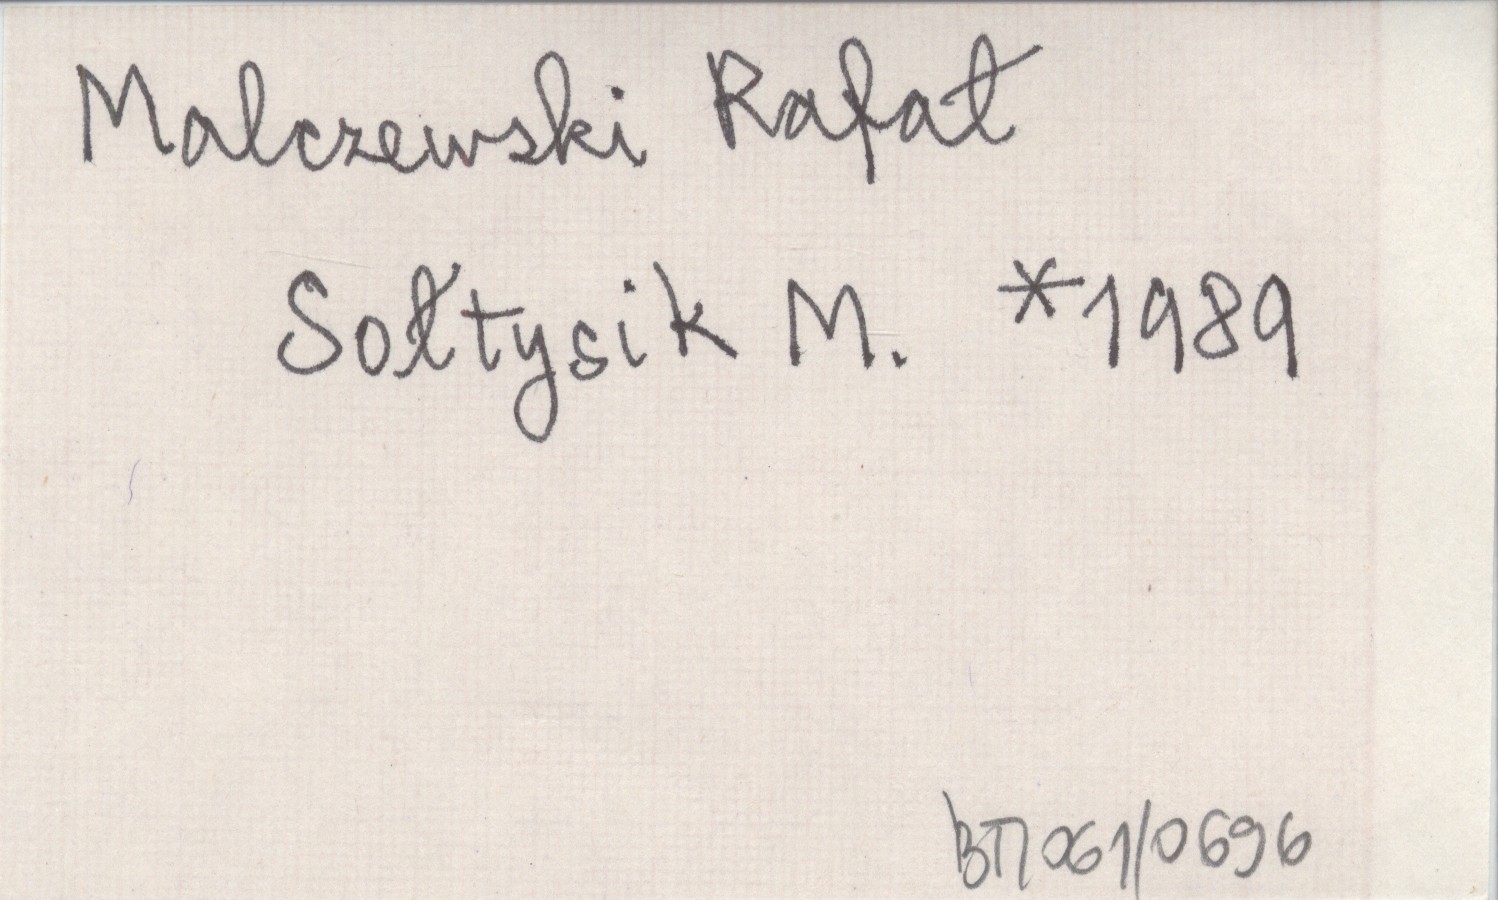 Malczewski Rafał
Sołtysik M. *1989
BTN061/0696